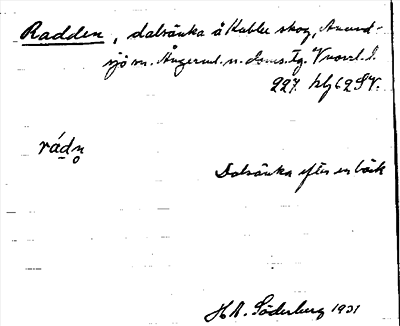 Radden, dalsänka å Kubbe skog, Anund-
sjö sn. Ångerml. n. doms.
227. hbl 62 SV.
rádn̥
Dalsänka efter en bäck
H A. Söderberg 1931